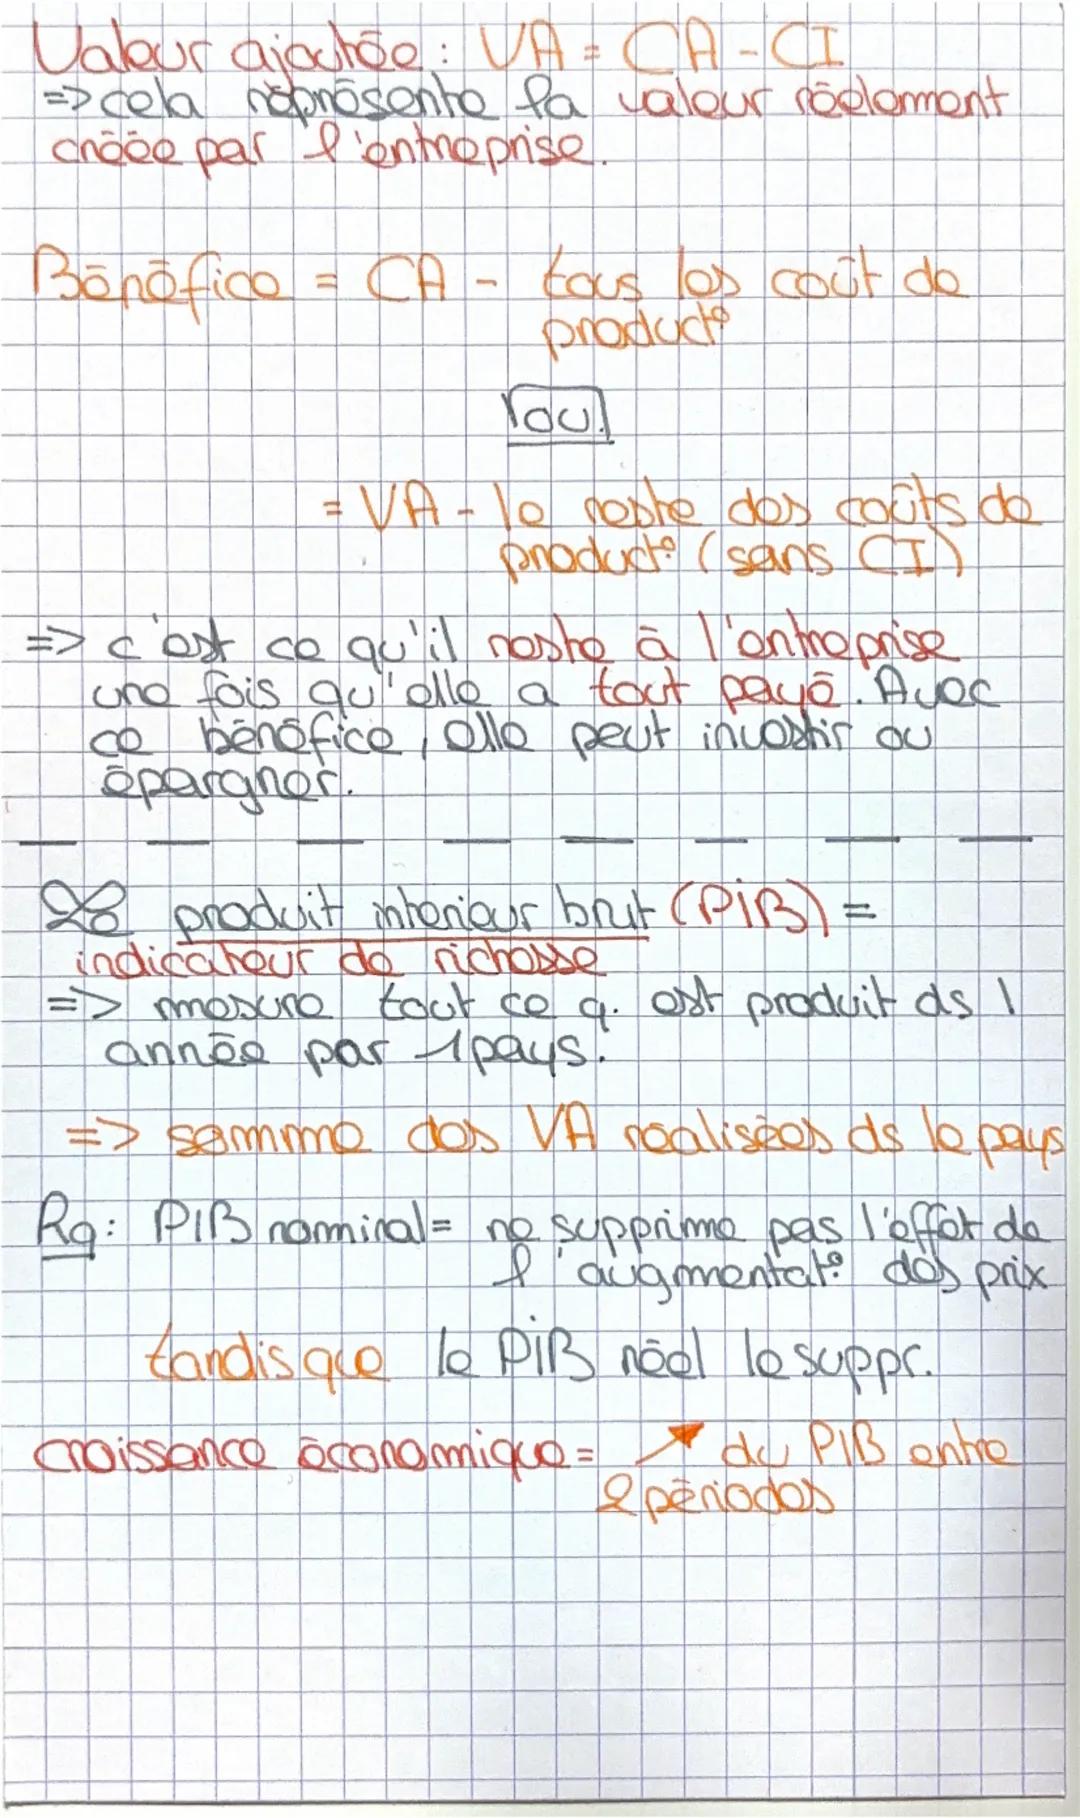 Valeur ajoutée : VA = CA - CI
=> cela représente la valeur réelement
créée par l'entreprise.
Bénéfice = CA - tous les coût de
product°
ou
= VA - le reste des coûts de
product° (sans CI)
=> c'est ce qu'il reste à l'entreprise
une fois qu'elle a tout payé. Avec
ce bénéfice, elle peut investir ou
épargner.
produit interieur brut (PIB) =
indicateur de richesse
=> mesure tout ce q. est produit ds 1
année par 1 pays.
=> somme des VA réalisées ds le pays
Rq: PIB nominal = ne supprime pas l'effet de
l'augmentat° des prix
tandis que le PIB réel le suppr.
croissance économique = ↗ du PIB entre
2 périodes